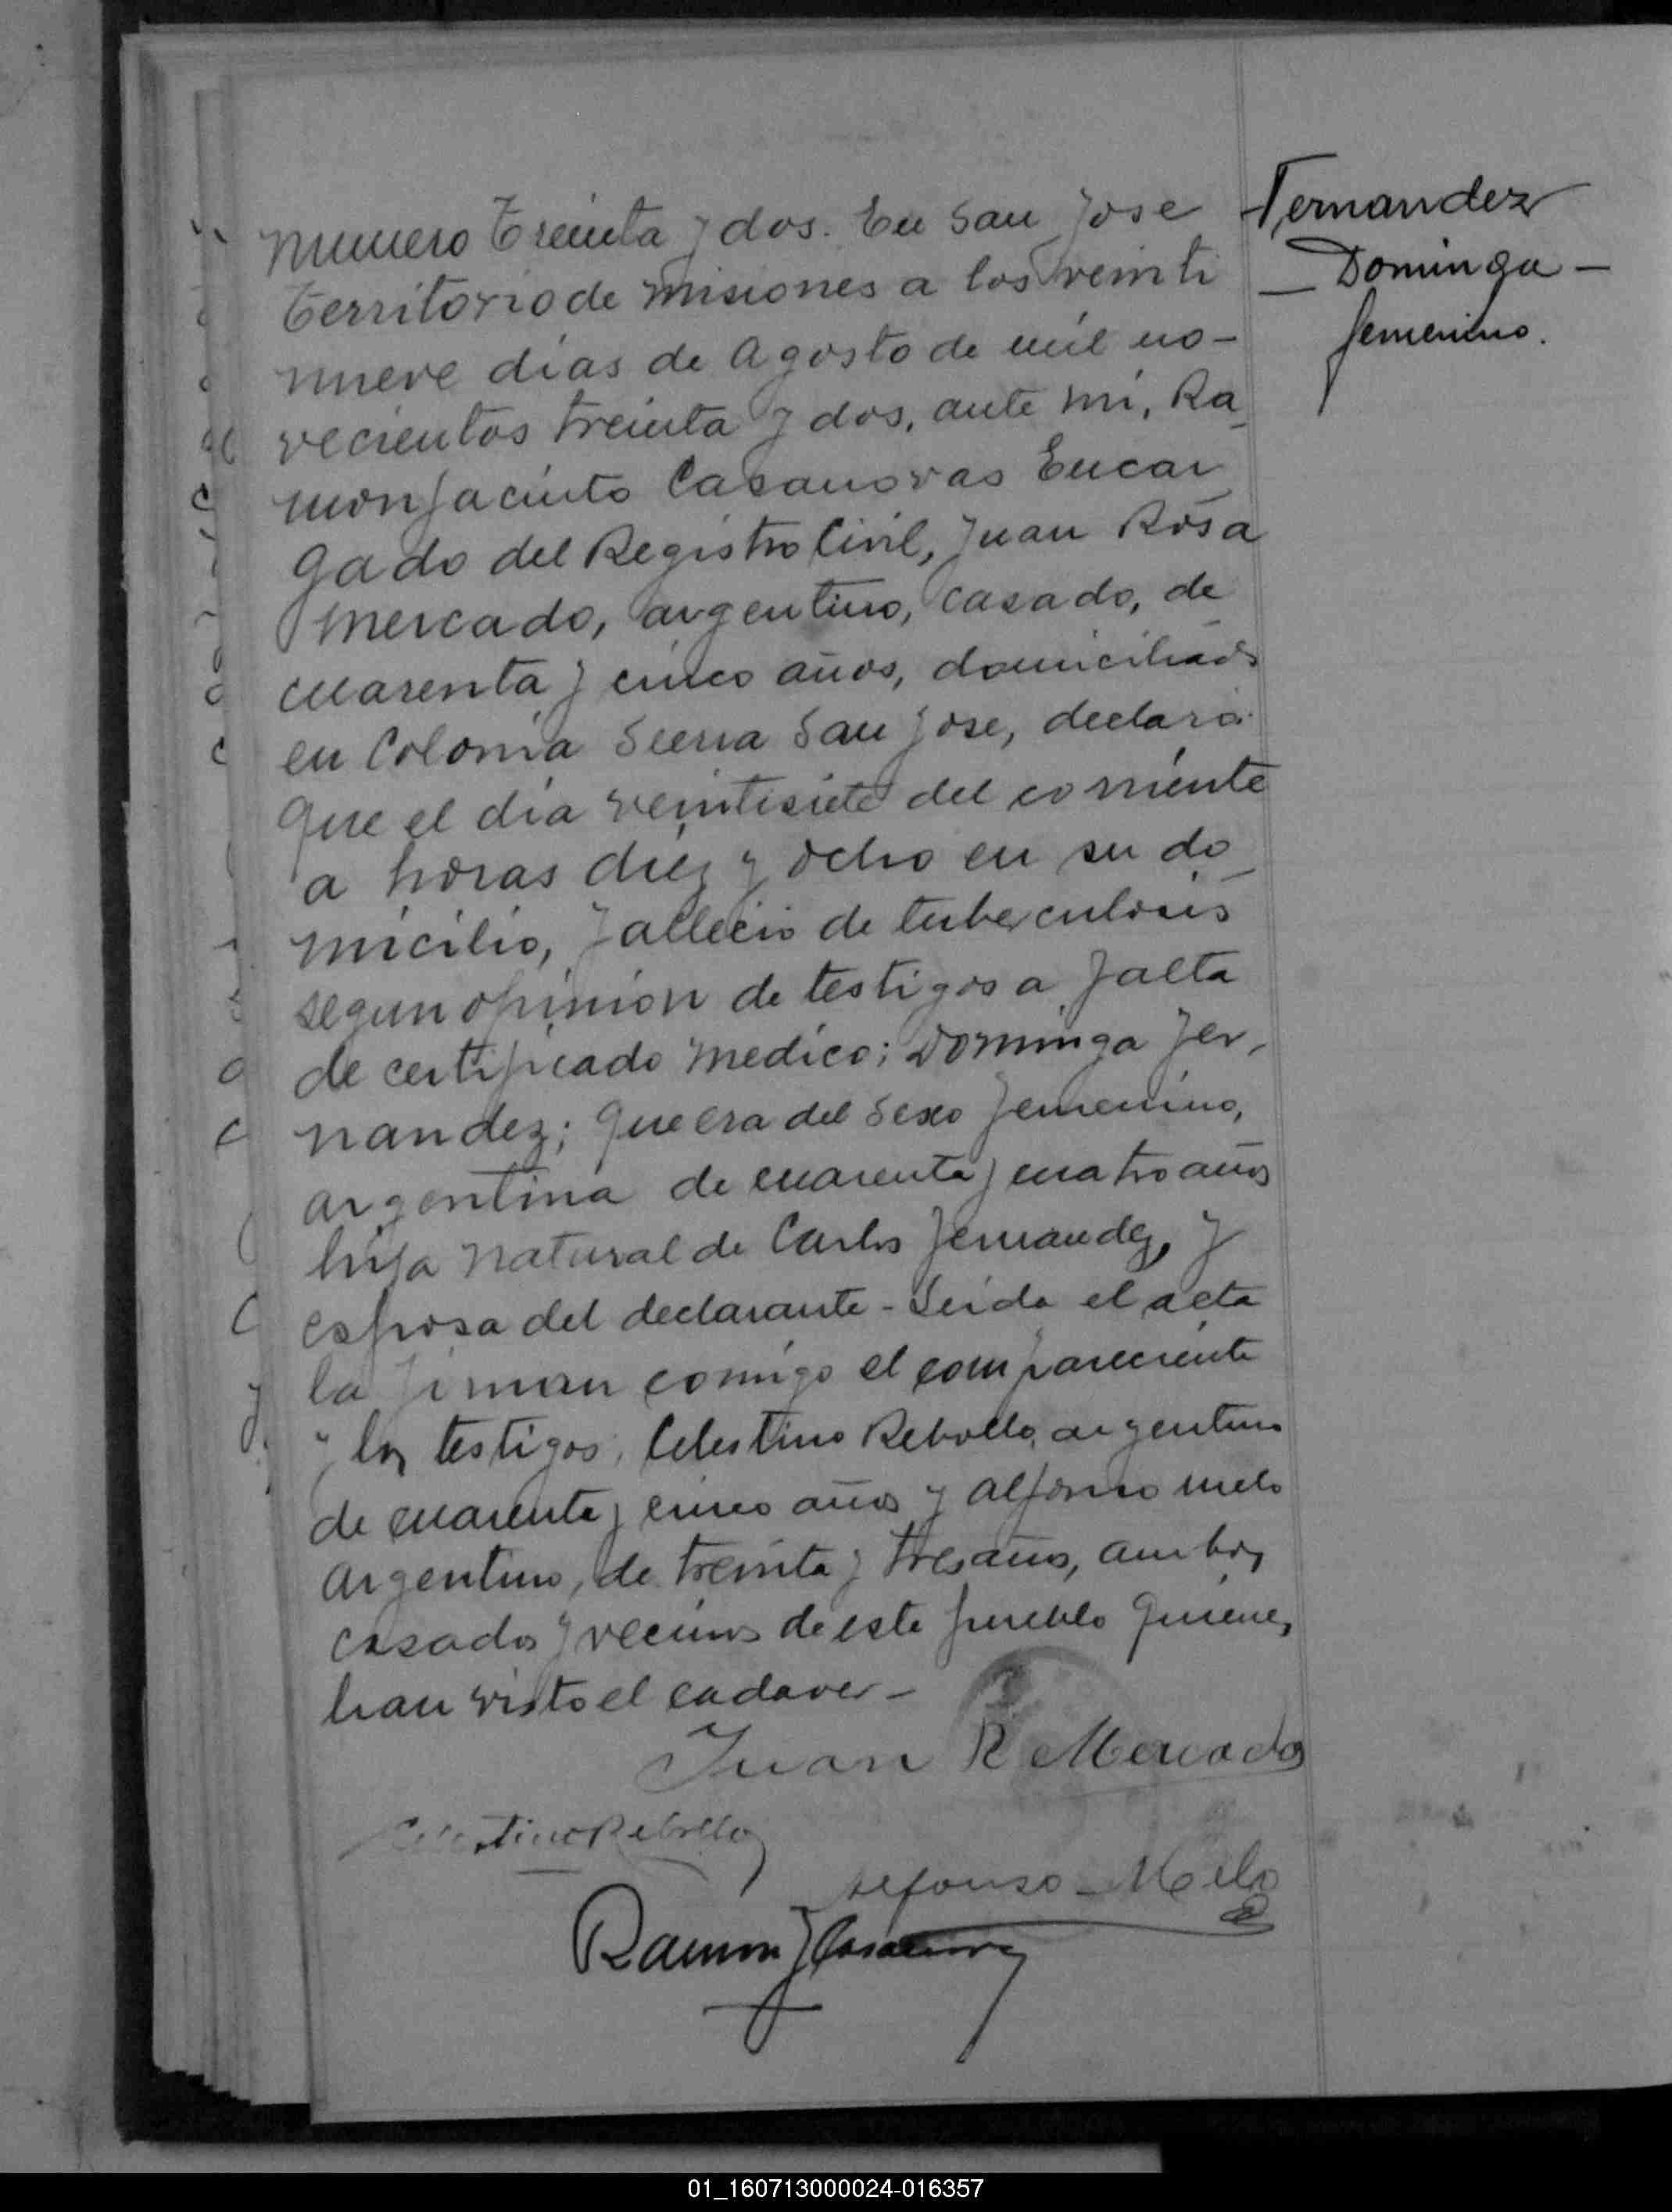 Numero Treinta y dos. En San Jose
Territorio de Misiones a los veinti
nueve dias de Agosto de mil no-
vecientos treinta y dos, ante mi, Ra_
mon Jacinto Casanovas Encar
gado del Registro Civil, Juan Rosa
Mercado, argentino, casado, de
cuarenta y cinco años, domiciliado
en Colonia Sierra San Jose, declara
que el dia veintisiete del corriente
a horas diez y ocho en su do_
micilio, fallecio de tuberculosis
segun opinion de testigos a falta
de certificado medico; Dominga Fer,
nandez; que era del sexo femenino,
argentina de cuarenta y cuatro años
hija natural de Carlos Fernandez, y
esposa del declarante - Leida el acta
la firman comigo el compareciente
y los testigos, Celestino Rebollo, argentino
de cuarenta y cinco años y Alfonso Melo
Argentino, de treinta y tres años, ambos
casados y vecinos de este pueblo quienes
han visto el cadaver -
Juan R Mercado
Celestino Rebollo
Alfonso - Melo
Ramon J Casanovas
Fernandez
_ Dominga -
femenino.
01_160713000024-016357